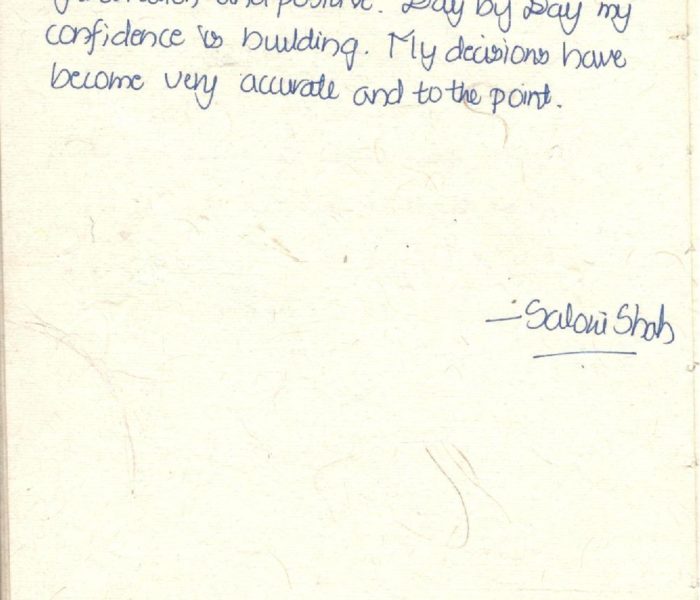 and positive. Day by Day my
confidence is building. My decisions have
become very accurate and to the point.
- Saloni Shah